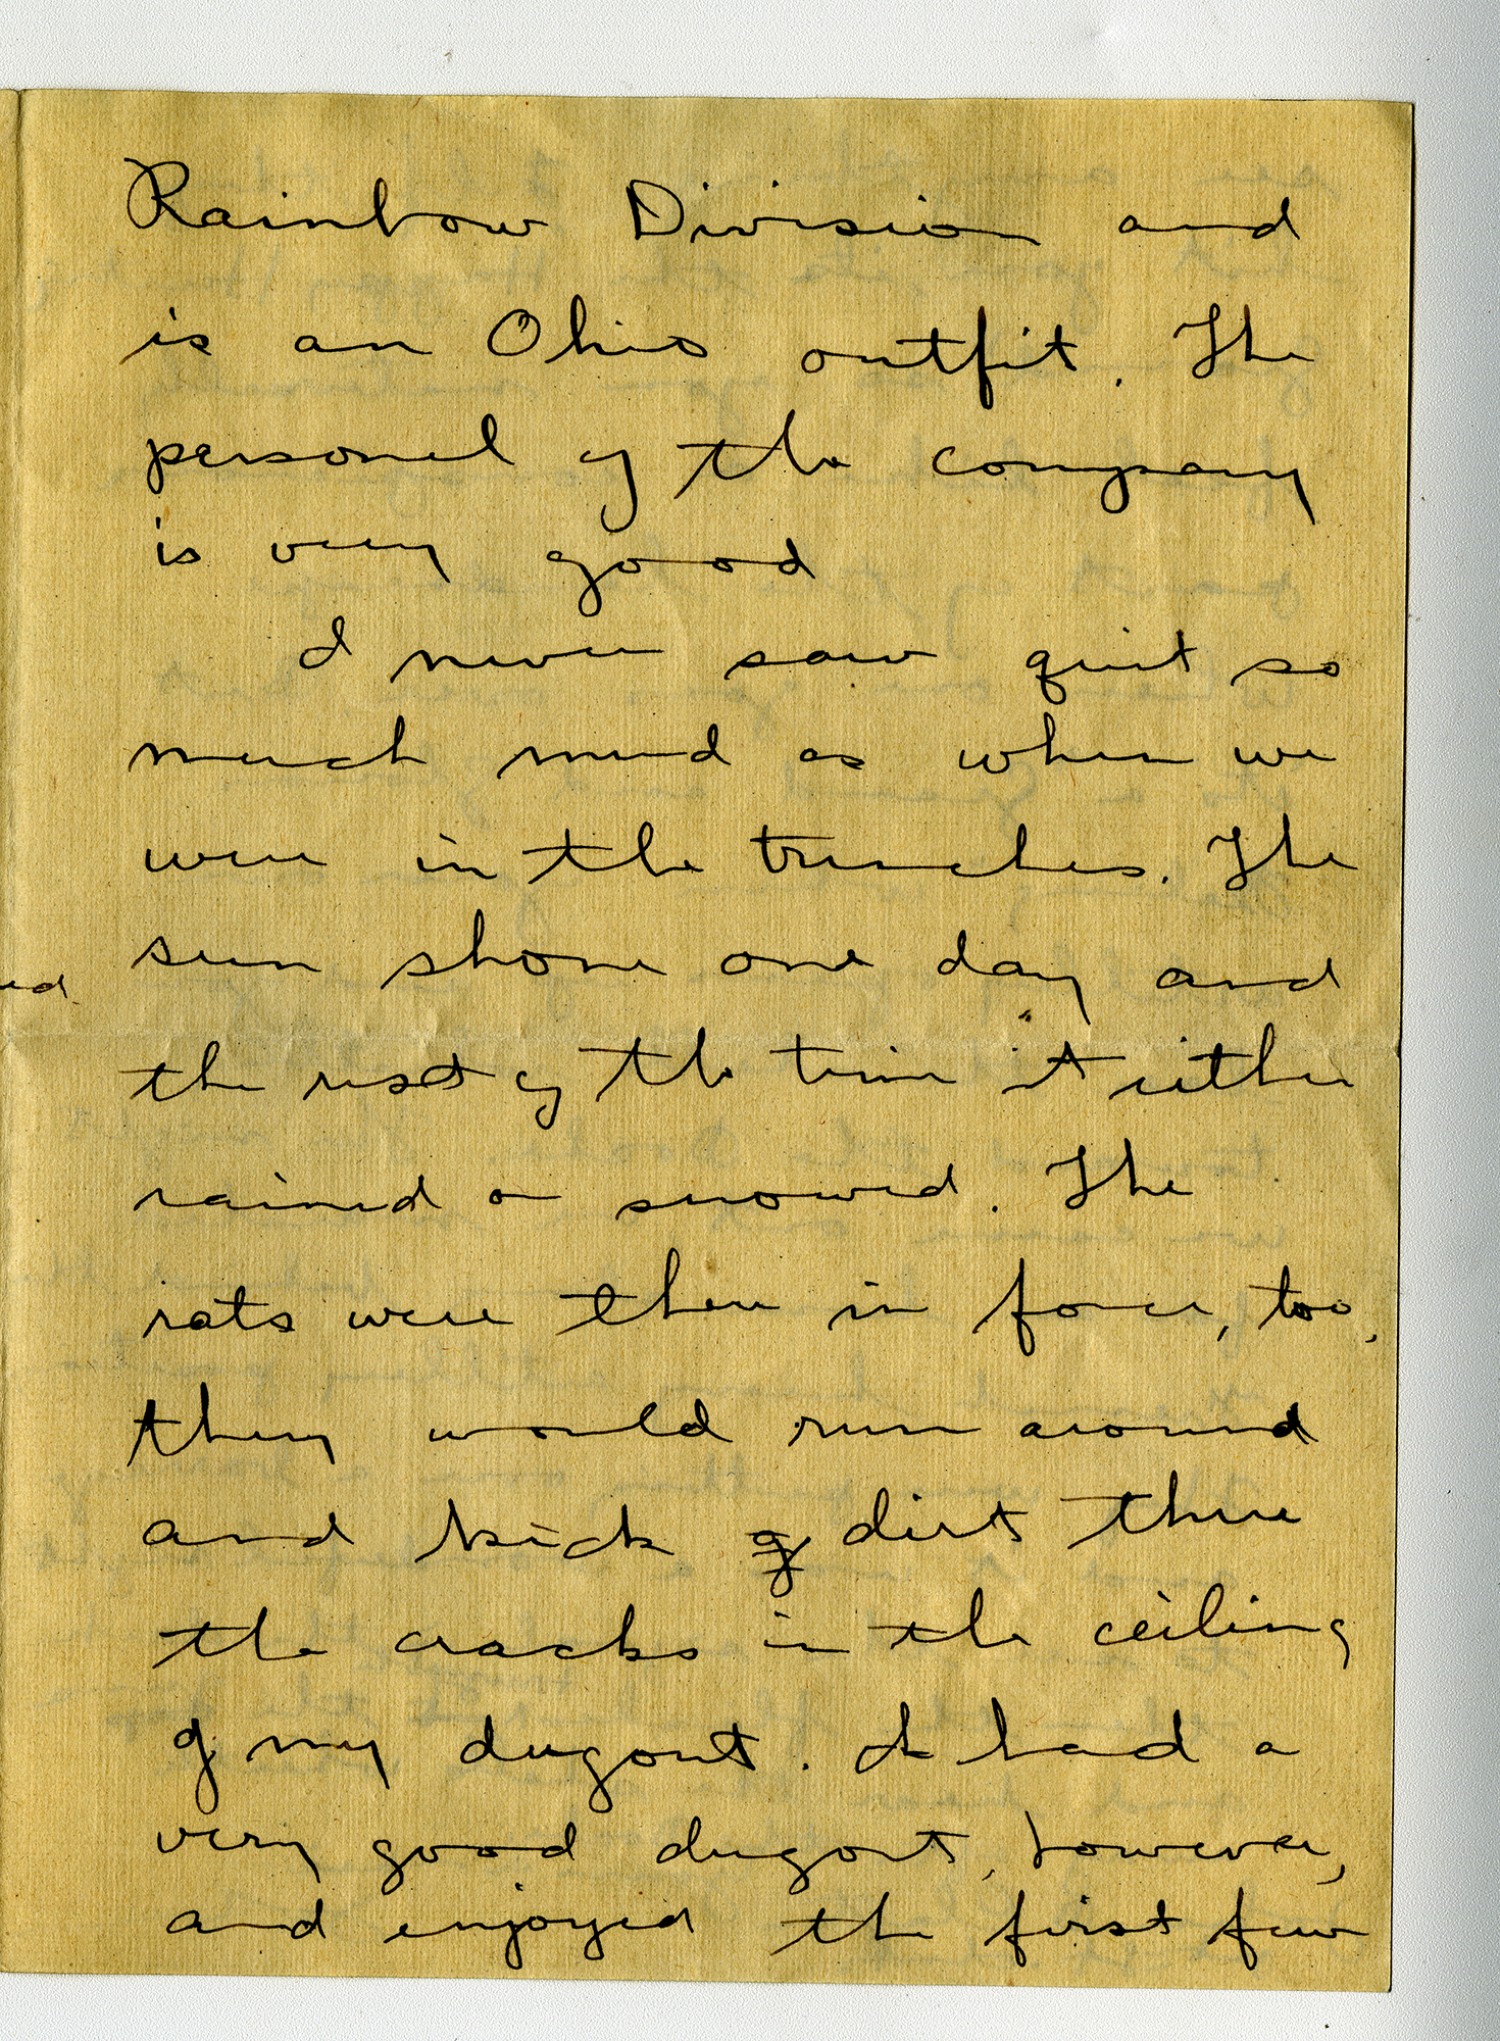 Rainbow Division and
is an Ohio outfit. The
personel of the company
is very good
I never saw quit so
much mud as when we
were in the trenches. The
sun shone one day and
the rest of the time it either
rained or snowed. The
rats were there in force, too,
they would run around
and kick dirt thru
the cracks in the ceiling
of my dugout. I had a
very good dugout, however,
and enjoyed the first few